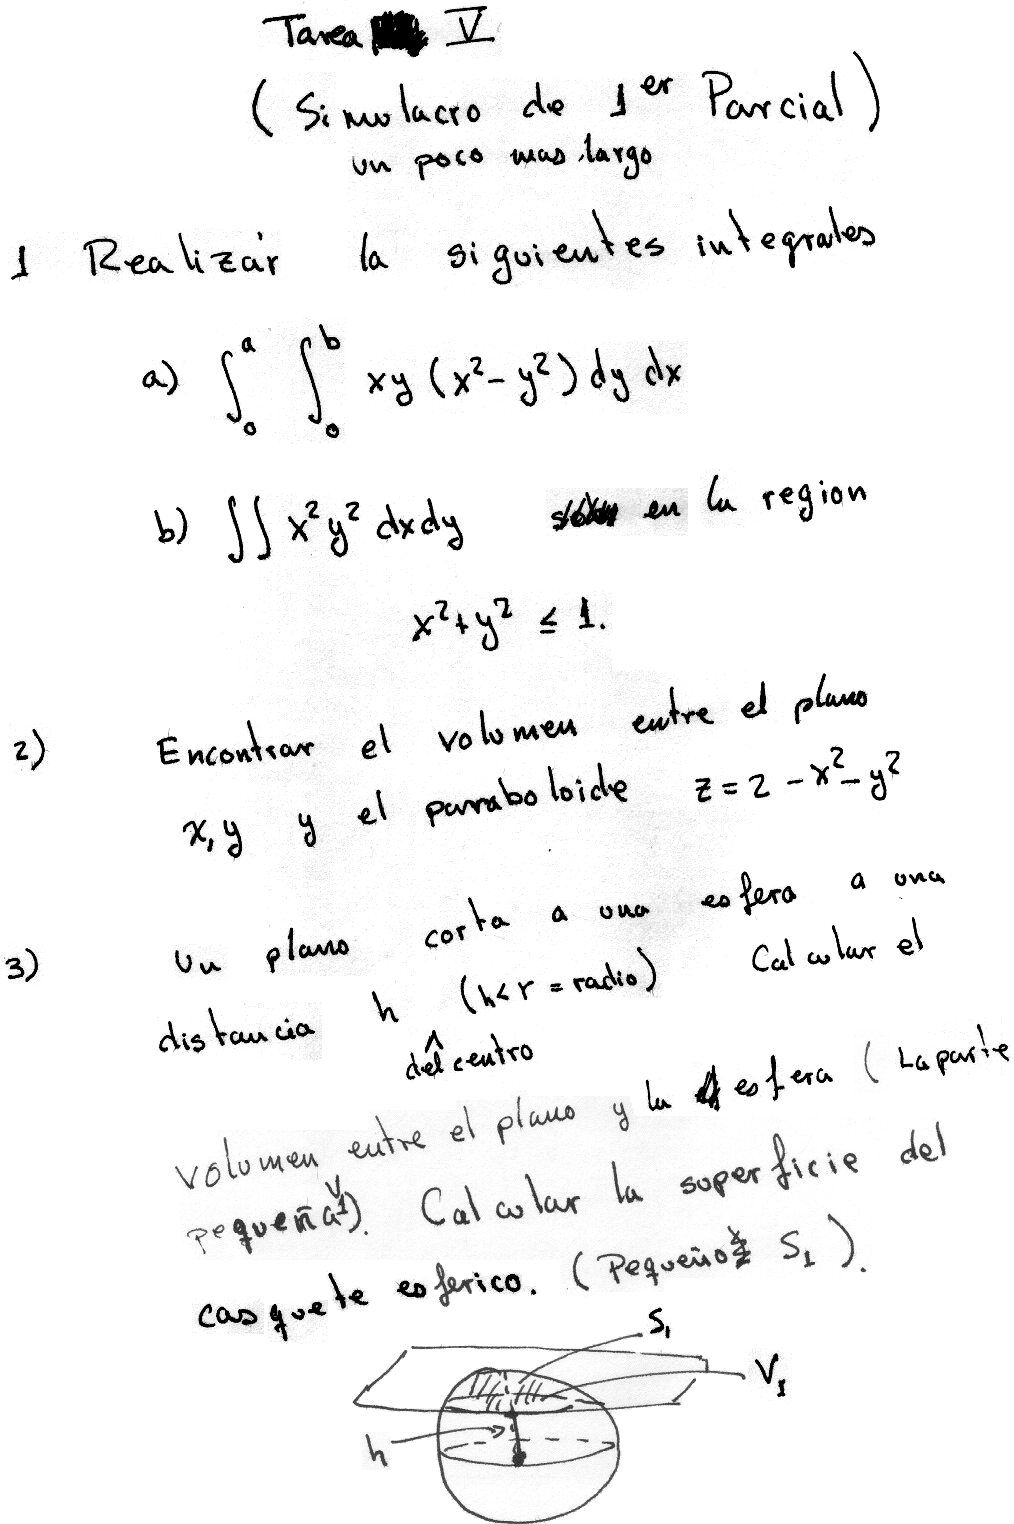 Tarea V
(Simulacro de 1er Parcial)
un poco mas largo
1 Realizár la siguientes integrales
a) ∫₀ᵃ ∫₀ᵇ xy (x²- y²) dy dx
b) ∫∫ x² y² dx dy en la region
x²+y² ≤ 1.
2) Encontrar el volumen entre el plano
x, y y el paraboloide z = 2 - x² - y²
3) Un plano corta a una esfera a una
distancia h (h<r = radio) Calcular el
^
del centro
volumen entre el plano y la esfera (La parte
pequeña V1). Calcular la superficie del
casquete esferico. (Pequeño S1).
S1
V1
h